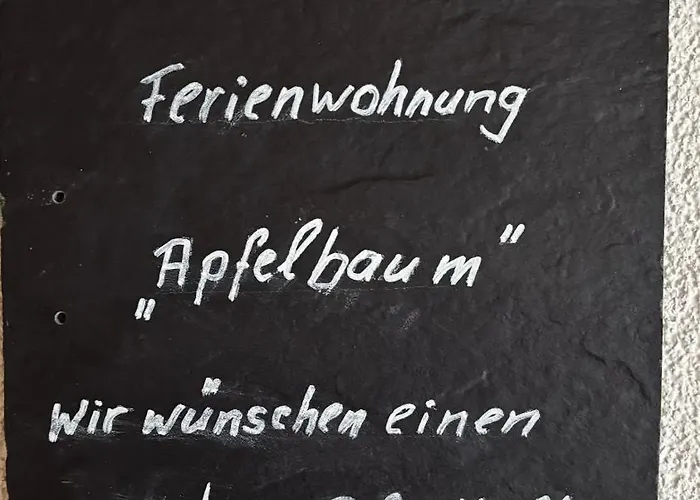 Ferienwohnung
„Apfelbaum"
Wir wünschen einen